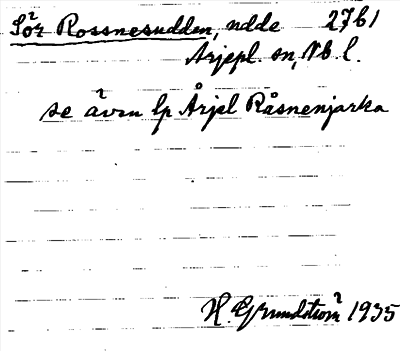 Sör Rossnesudden, udde 2761
Arjepl sn, Vb l.
se även lp Årjel Råsnenjarka
H. Grundström 1935